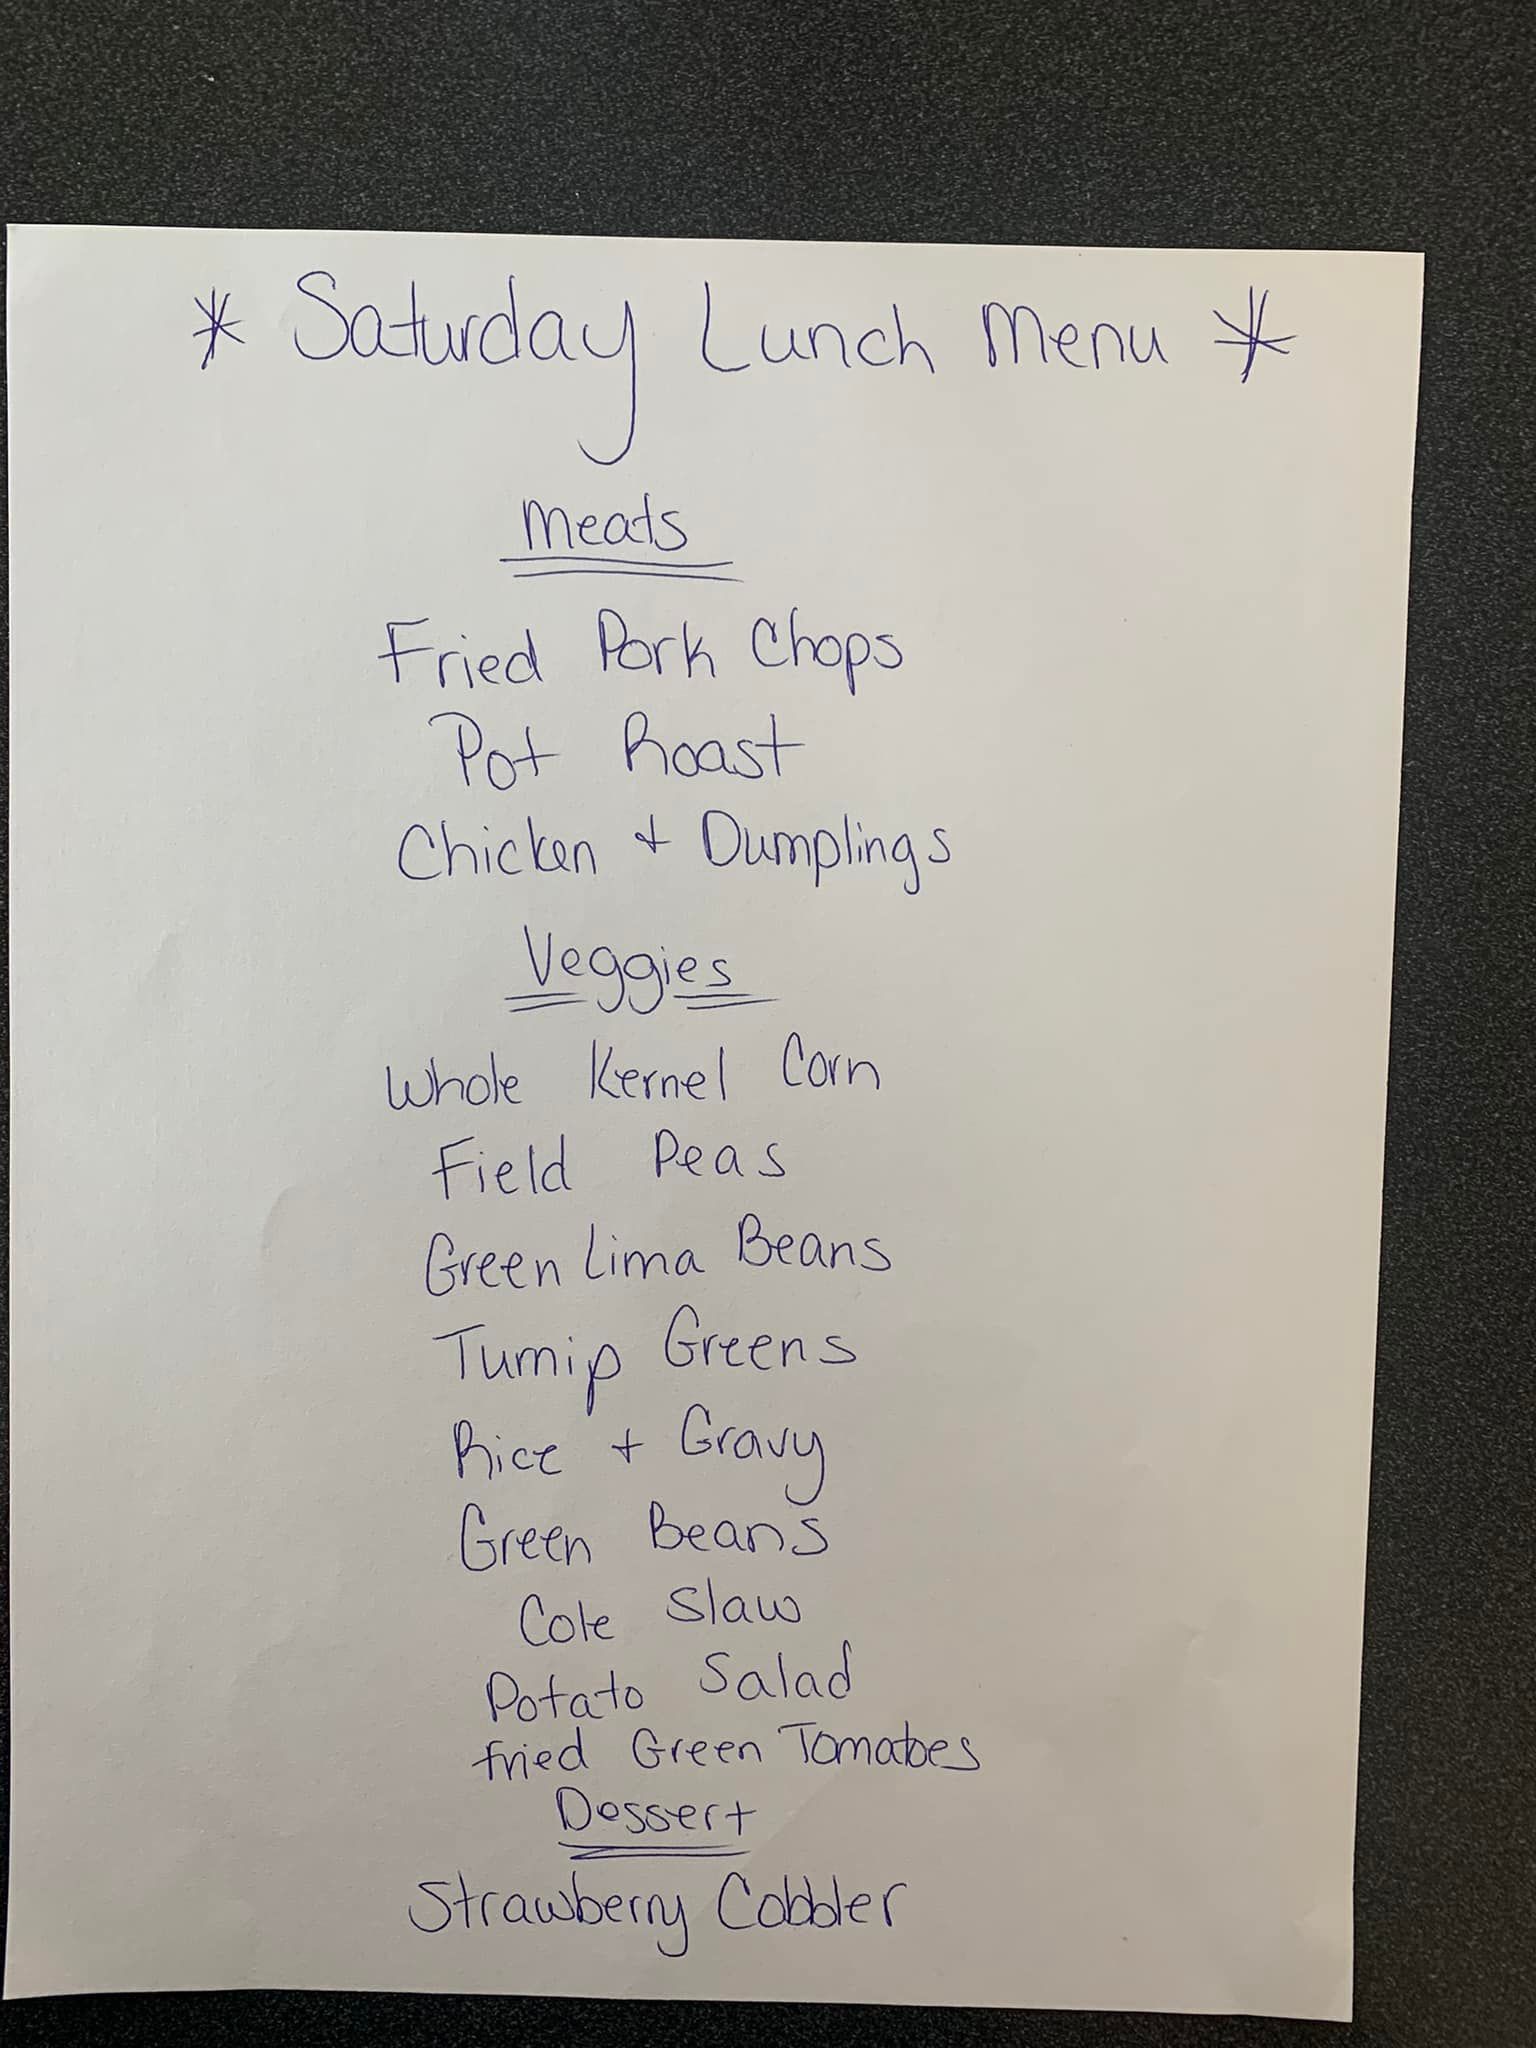 * Saturday Lunch Menu *
Meats
Fried Pork Chops
Pot Roast
Chicken + Dumplings
Veggies
Whole Kernel Corn
Field Peas
Green Lima Beans
Turnip Greens
Rice + Gravy
Green Beans
Cole Slaw
Potato Salad
fried Green Tomatoes
Dessert
Strawberry Cobbler